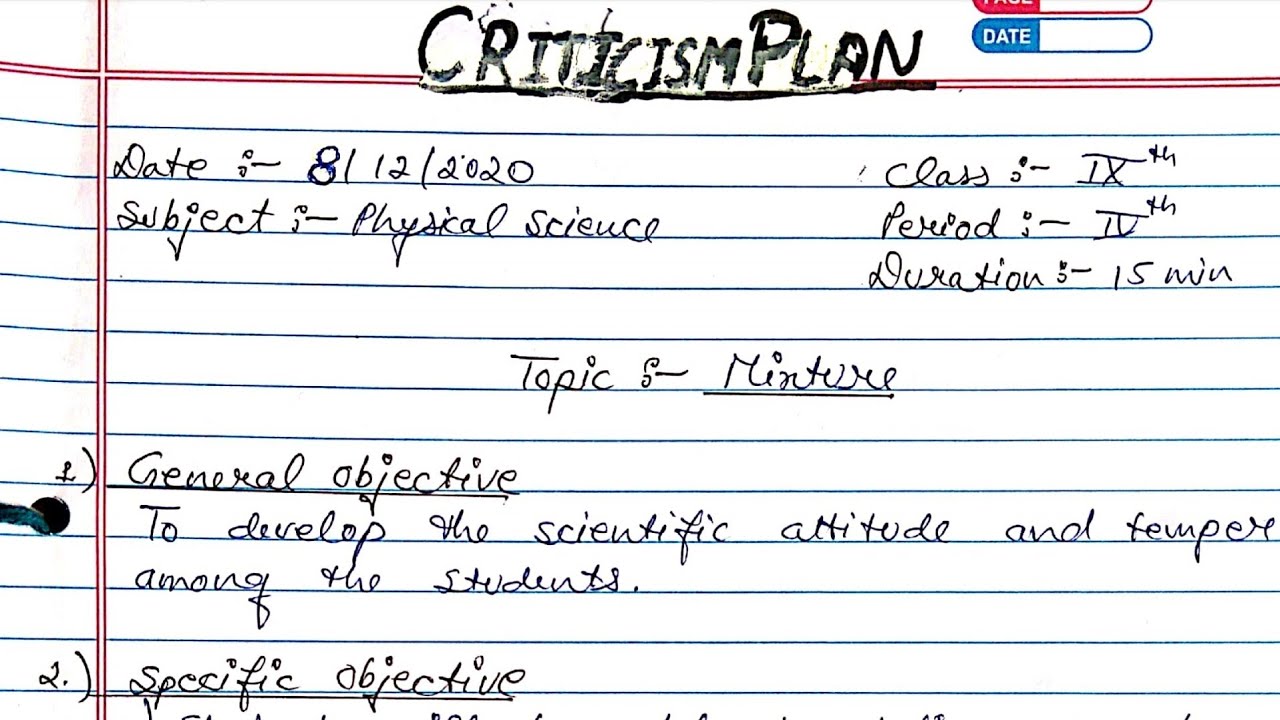 PAGE
CRITICISM PLAN
DATE
Date :- 8/12/2020
Class :- IXth
Subject :- Physical Science
Period :- IVth
Duration :- 15 min
Topic :- Mixture
1) General objective
To develop the scientific attitude and temper
among the students.
2.) Specific objective